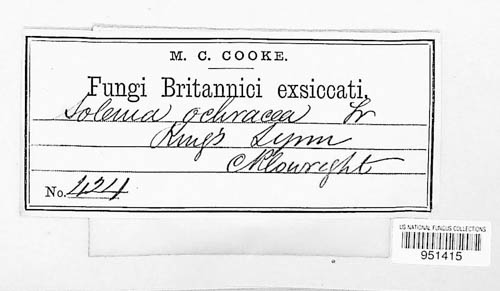 M. C. COOKE.
Fungi Britannici exsiccati,
Solenia ochracea Fr
Kings Lynn
C Plowright
No. 424
US NATIONAL FUNGUS COLLECTIONS
951415